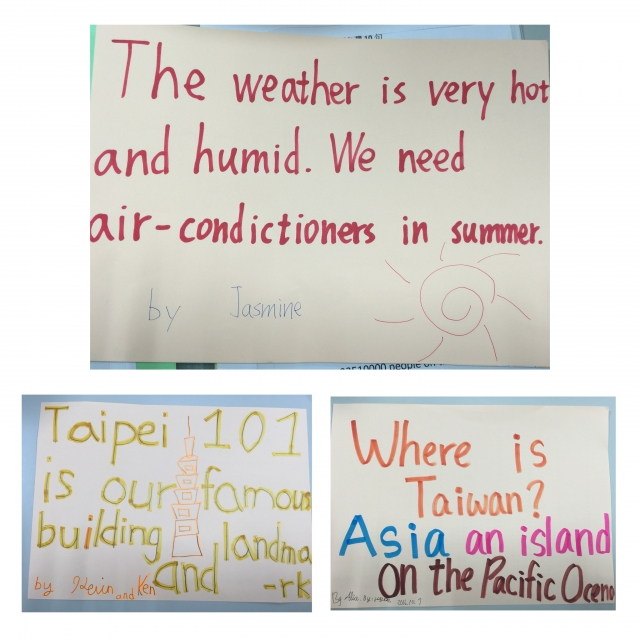 The weather is very hot
and humid. We need
air-condictioners in summer.
by Jasmine
Taipei 101
is our famous
building landma
and -rk
by Kevin and Ken
Where is
Taiwan?
Asia an island
on the Pacific Oceno
By